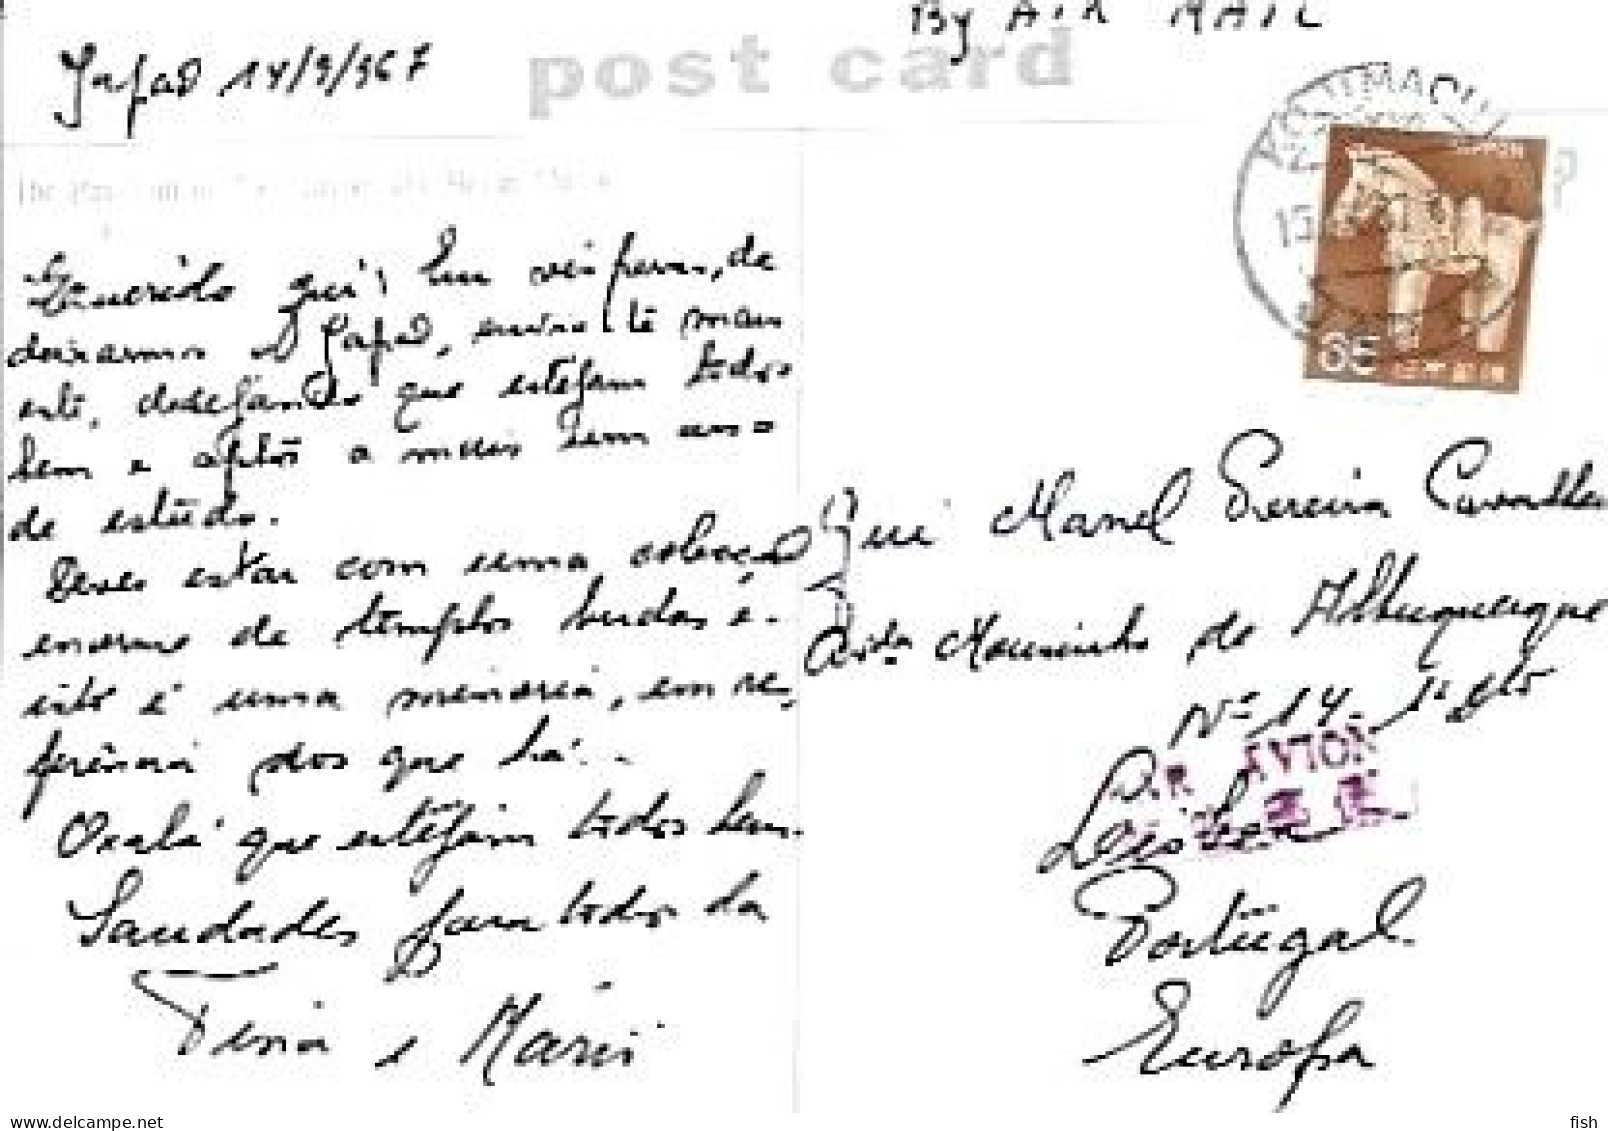 By AIR MAIL
post card
Japão 14/9/967
NIPPON
65
Querido Qui, Em vésperas, de
deixarmos o Japão, envio-te mais
este, desejando que estejam todos
bem e aptos a mais um ano
de estudo.
Deves estar com uma colecção
enorme de templos budas e
isto é uma minoria, em re-
ferência dos que há...
Oxalá que estejam todos bem.
Saudades para todos da
e Mário
Qui Manel Pereira Carvalho
Avida Mousinho de Albuquerque
Nº 14 1º Dto
PAR AVION
Lisboa
Portugal
Europa
www.delcampe.net
fish